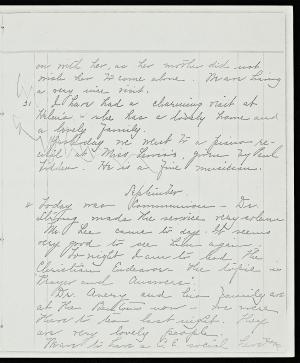 on with her, as her mother did not
wish her to come alone. We are having
a very nice visit.
31 I have had a charming visit at
she has a lovely home and
a lovely family.
Yesterday we went to a piano re-
cital at Miss given by Paul
He is a fine musician.
September
Today was Communion - Dr.
Strong made the service very solemn
Mr. Lee came to day. It seems
very good to see him again.
To night I am to lead the
Christian Endeavor the topic is
Prayer and Answers.
Dr. Avery and his family are
at the now - we were
there to tea last night. They
are very lovely people.
Want to have a C.E. social